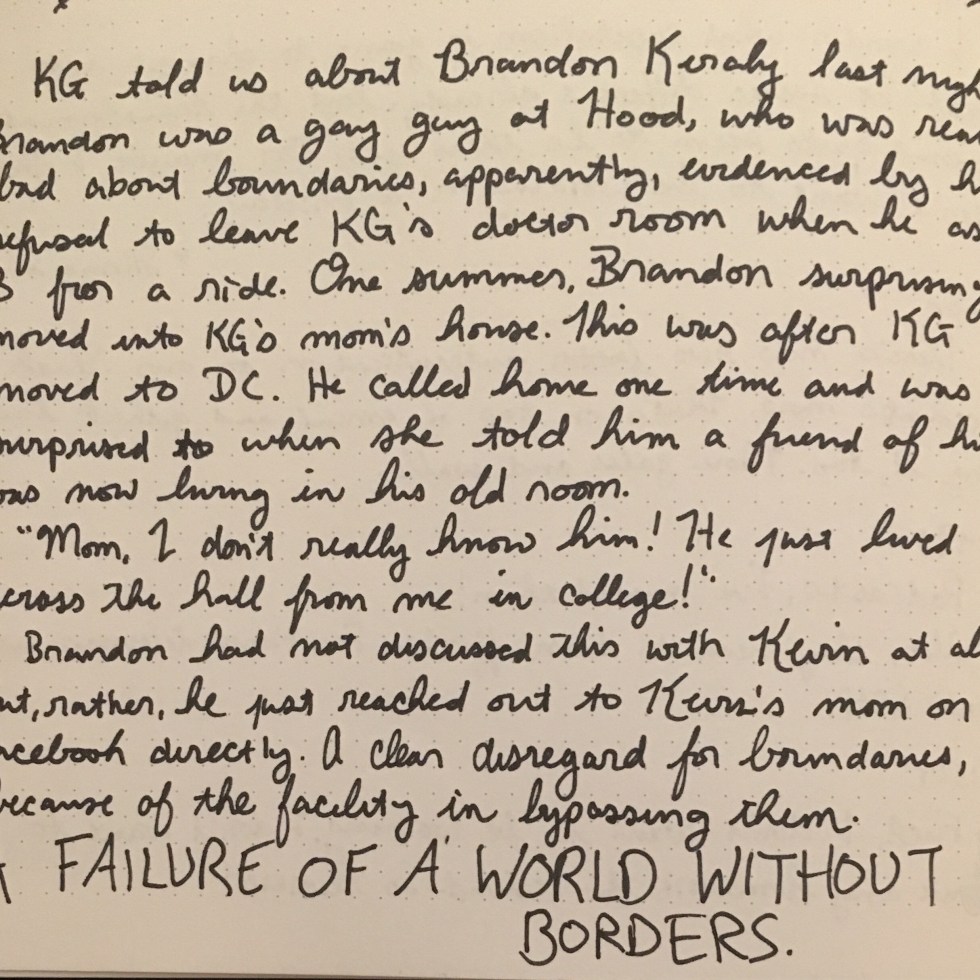 KG told us about Brandon Keraly last nigh
Brandon was a gay guy at Hood, who was real
bad about boundaries, apparently, evidenced by h
refusal to leave KG's doctor room when he as
B fror a ride. One summer, Brandon surprising
moved into KG's mom's house. This was after KG
moved to DC. He called home one time and was
surprised to when she told him a friend of hi
was now living in his old room.
"Mom, I don't really know him! He just lived
cross the hall from me in college!"
Brandon had not discussed this with Kevin at al
ut, rather, he just reached out to Kevin's mom on
acebook directly. A clear disregard for boundaries,
because of the facility in bypassing them.
A FAILURE OF A WORLD WITHOUT
BORDERS.